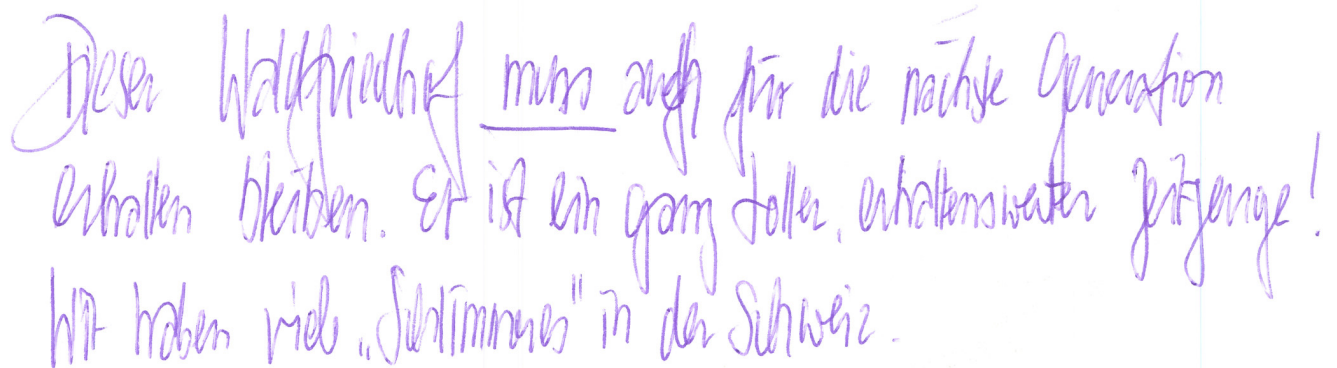 Dieser Waldfriedhof muss auch für die nächste Generation
erhalten bleiben. Er ist ein ganz toller, erhaltenswerter Zeitzeuge!
Wir haben viel „Schlimmeres" in der Schweiz.